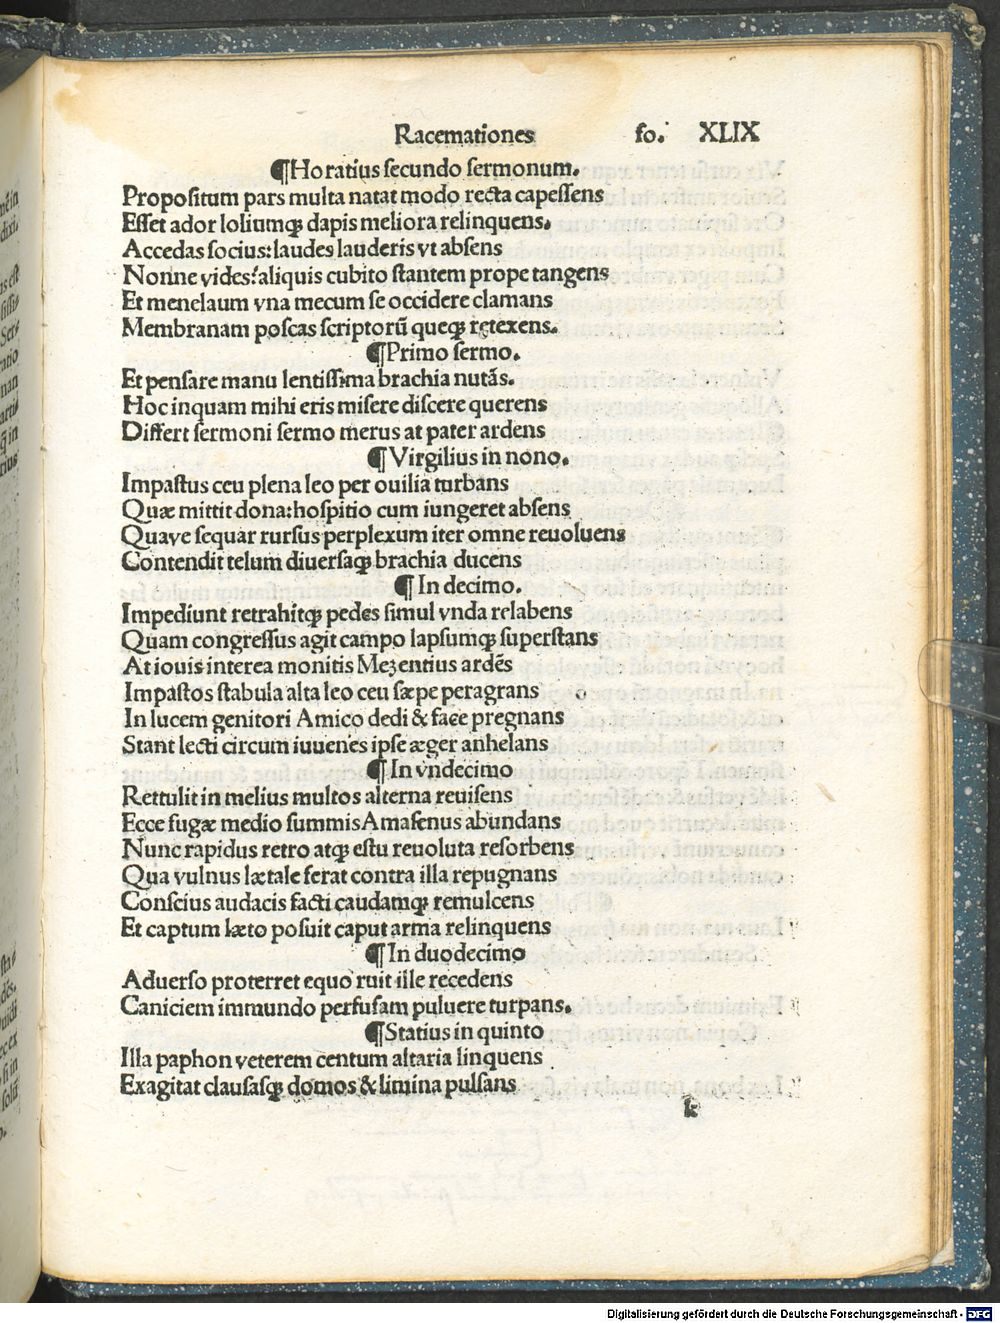 Racemationes fo. XLIX
¶Horatius secundo sermonum.
Propositum pars multa natat modo recta capessens
Esset ador loliumqꝫ dapis meliora relinquens.
Accedas socius: laudes lauderis vt absens
Nonne vides? aliquis cubito stantem prope tangens
Et menelaum vna mecum se occidere clamans
Membranam poscas scriptorũ queqꝫ retexens.
¶Primo sermo.
Et pensare manu lentissima brachia nutãs.
Hoc inquam mihi eris misere discere querens
Differt sermoni sermo merus at pater ardens
¶Virgilius in nono.
Impastus ceu plena leo per ouilia turbans
Quæ mittit dona: hospitio cum iungeret absens
Quave sequar rursus perplexum iter omne reuoluens
Contendit telum diuersaqꝫ brachia ducens
¶In decimo.
Impediunt retrahitqꝫ pedes simul vnda relabens
Quam congressus agit campo lapsumqꝫ superstans
At iouis interea monitis Mezentius ardẽs
Impastos stabula alta leo ceu sæpe peragrans
In lucem genitori Amico dedi & face pregnans
Stant lecti circum iuuenes ipse æger anhelans
¶In vndecimo
Rettulit in melius multos alterna reuisens
Ecce fugæ medio summis Amasenus abundans
Nunc rapidus retro atqꝫ estu reuoluta resorbens
Qua vulnus lætale ferat contra illa repugnans
Conscius audacis facti caudamqꝫ remulcens
Et captum læto posuit caput arma relinquens
¶In duodecimo
Aduerso proterret equo ruit ille recedens
Caniciem immundo perfusam puluere turpans.
¶Statius in quinto
Illa paphon veterem centum altaria linquens
Exagitat clausasqꝫ domos & limina pulsans
k
Digitalisierung gefördert durch die Deutsche Forschungsgemeinschaft - DFG